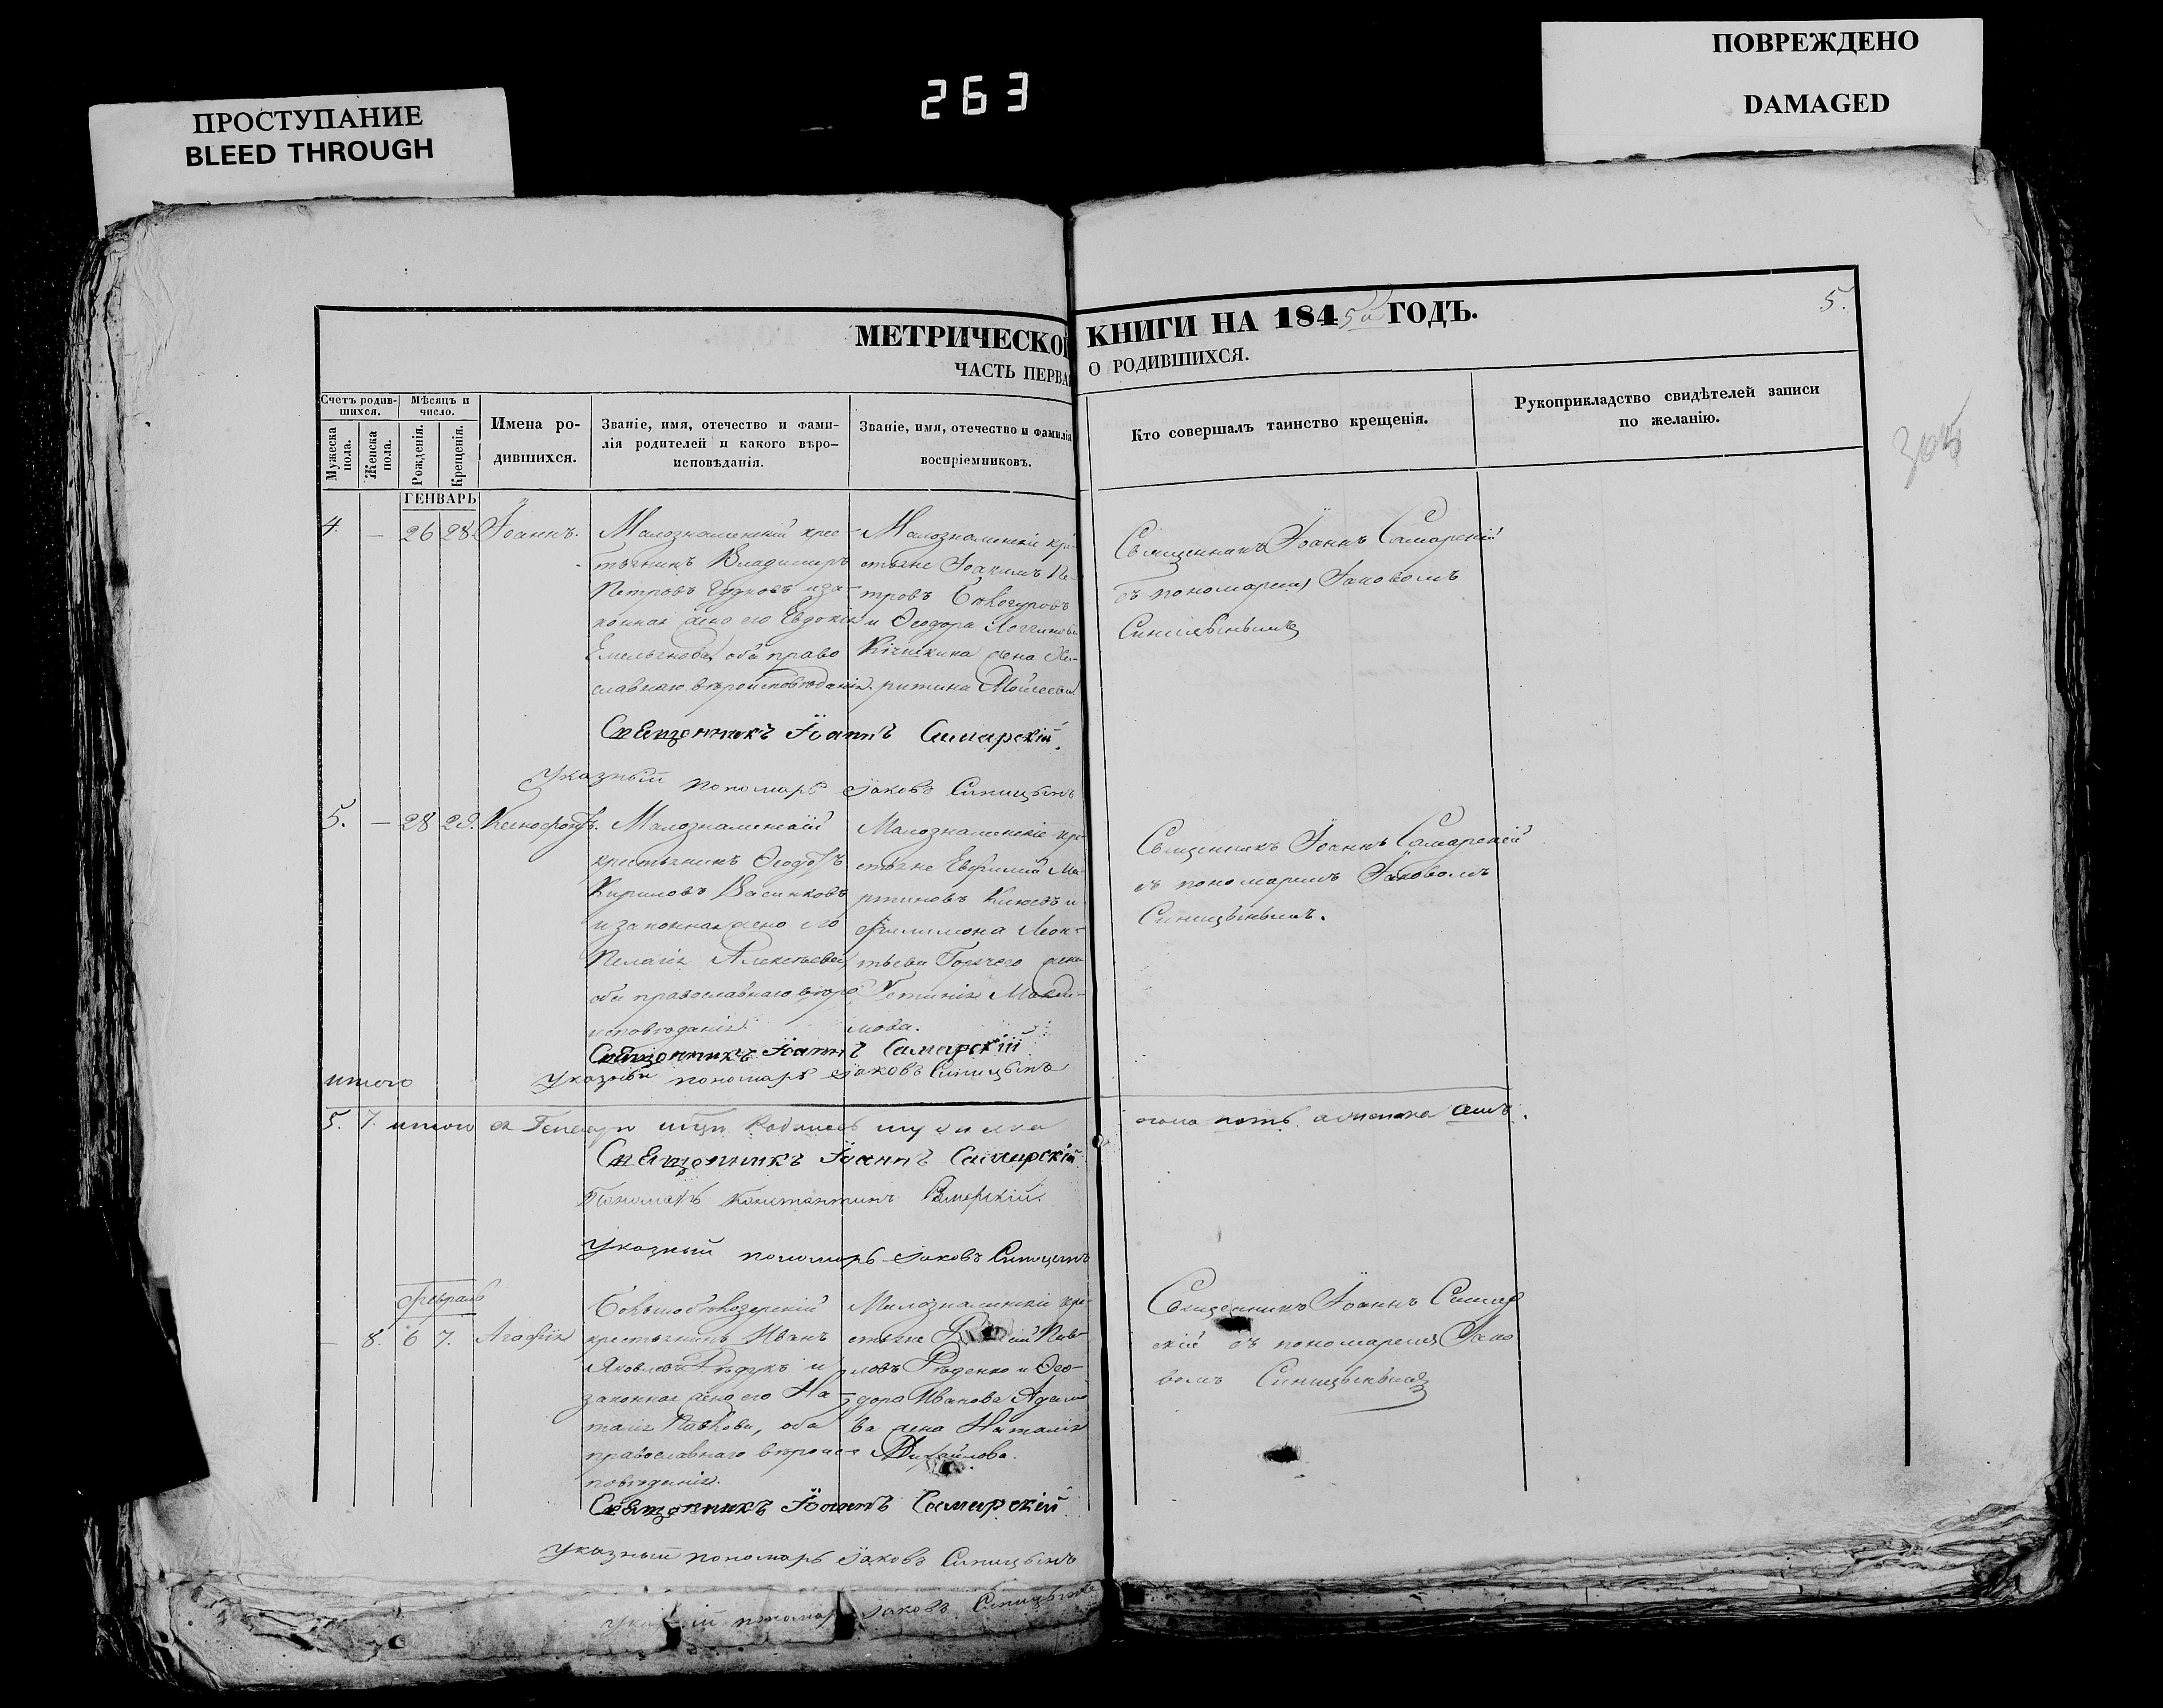 ПОВРЕЖДЕНО
DAMAGED
263
ПРОСТУПАНИЕ
BLEED THROUGH
МЕТРИЧЕСКОЙ КНИГИ НА 1845й ГОДЪ.
5.
ЧАСТЬ ПЕРВАЯ О РОДИВШИХСЯ.
Счетъ родив-
шихся.
Мужеска пола.
Женска пола.
Мѣсяцъ и
число.
Рожденія.
Крещенія.
Имена ро-
дившихся.
Званіе, имя, отечество и фами-
лія родителей и какого вѣро-
исповѣданія.
Званіе, имя, отечество и фамилія
воспріемниковъ.
Кто совершалъ таинство крещенія.
Рукоприкладство свидѣтелей записи
по желанію.
ГЕНВАРЬ
4. — 26 28. Іоаннъ.
Малознаменскій крес-
тьянинъ Владимиръ
Петровъ и за-
конная жена его Евдокія
Емельянова, оба право
славнаго вѣроисповѣданія.
Малознаменскіе кре-
стьяне Іоакимъ Пе-
тровъ Бѣлогуровъ
и Ѳеодора Логгинова
жена Ха-
ритина Моисеева
Священникъ Іоаннъ Самарскій
съ пономаремъ Іаковомъ
Синицынымъ
Священникъ Іоаннъ Самарскій.
Указный пономарь Іаковъ Синицынъ
5. — 28 29. Ксенофонтъ.
Малознаменскій
крестьянинъ Ѳеодотъ
Кириловъ Васильковъ
и законная жена его
Пелагія Алексѣева,
оба православнаго вѣро
исповѣданія.
Малознаменскіе кре-
стьяне Евфимій Ма-
ртиновъ и
Филимона Леон-
тьева Горячего жена
Максимова.
Священникъ Іоаннъ Самарскій
съ пономаремъ Іаковомъ
Синицынымъ.
Священникъ Іоаннъ Самарскій
Указный пономарь Іаковъ Синицынъ
итого
5. 7. итого въ Генварѣ родилось мужска
пола пять, а женска семь.
Священникъ Іоаннъ Самарскій
Пономарь Константинъ
Указный пономарь Іаковъ Синицынъ
Февраль
— 8. 6 7. Агафія
крестьянинъ Иванъ
Яковлевъ и
законная жена его На-
талія Павлова, оба
православнаго вѣроис
повѣданія.
Малознаменскіе кре-
стьяне Пав-
ловъ Рѣденко и Ѳео-
дора Иванова Адамо
ва жена Наталія
Михайлова.
Священникъ Іоаннъ Самар
скій съ пономаремъ Іако
вомъ Синицынымъ
Священникъ Іоаннъ Самарскій
Указный пономарь Іаковъ Синицынъ
Указный пономарь Іаковъ Синицынъ